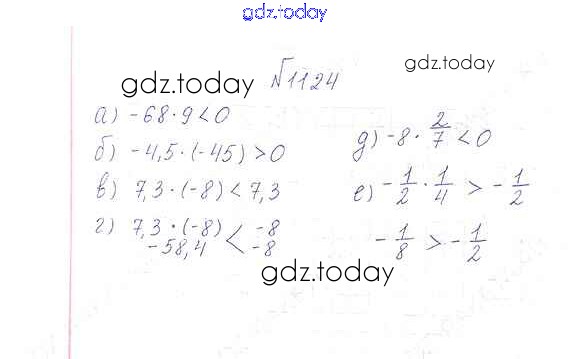 gdz.today
gdz.today
gdz.today
№1124
а) -68·9<0
б) -4,5·(-45)>0
в) 7,3·(-8)<7,3
г) 7,3·(-8) < -8
-58,4 < -8
д) -8·2/7<0
е) -1/2·1/4 > -1/2
-1/8 > -1/2
gdz.today